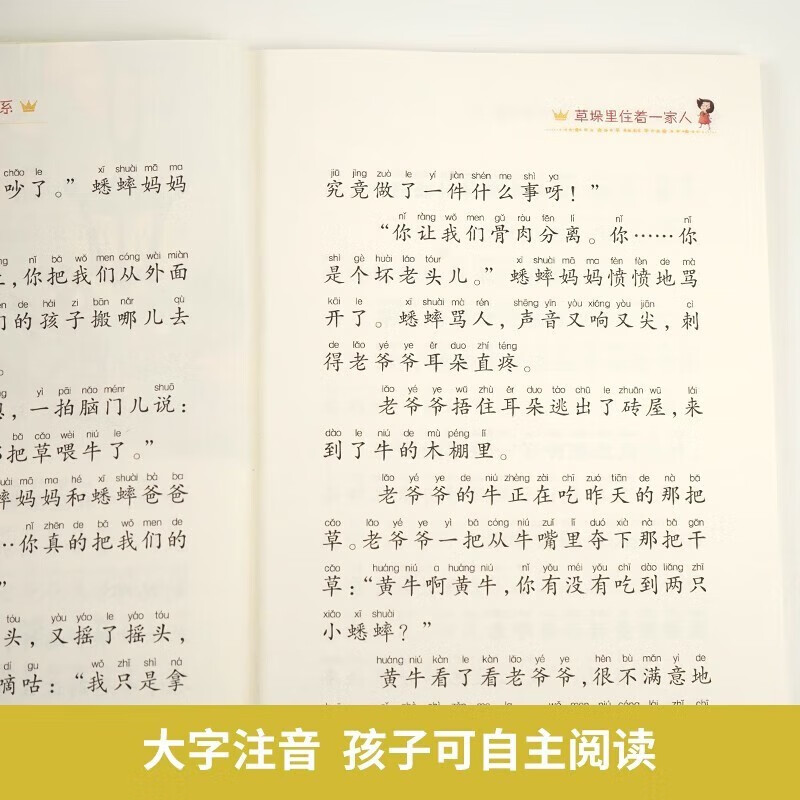 系
chǎo le xī shuài mā ma
吵了。”蟋蟀妈妈
nǐ bǎ wǒ men cóng wài miàn
上,你把我们从外面
en de hái zi bān nǎr qù
们的孩子搬哪儿去
yì pāi nǎo ménr shuō
,一拍脑门儿说:
bǎ cǎo wèi niú le
把草喂牛了。”
shuài mā ma hé xī shuài bà ba
蟀妈妈和蟋蟀爸爸
nǐ zhēn de bǎ wǒ men de
…你真的把我们的
”
tóu yòu yáo le yáo tóu
头,又摇了摇头,
dí gu wǒ zhǐ shì ná
嘀咕:“我只是拿
草垛里住着一家人
jiū jìng zuò le yí jiàn shén me shì ya
究竟做了一件什么事呀!”
nǐ ràng wǒ men gǔ ròu fēn lí nǐ nǐ
“你让我们骨肉分离。你……你
shì gè huài lǎo tóur xī shuài mā ma fèn fèn de mà
是个坏老头儿。”蟋蟀妈妈愤愤地骂
kāi le xī shuài mà rén shēng yīn yòu xiǎng yòu jiān cì
开了。蟋蟀骂人,声音又响又尖,刺
de lǎo yé ye ěr duo zhí téng
得老爷爷耳朵直疼。
lǎo yé ye wǔ zhù ěr duo táo chū le zhuān wū lái
老爷爷捂住耳朵逃出了砖屋,来
dào le niú de mù péng lǐ
到了牛的木棚里。
lǎo yé ye de niú zhèng zài chī zuó tiān de nà bǎ
老爷爷的牛正在吃昨天的那把
cǎo lǎo yé ye yì bǎ cóng niú zuǐ lǐ duó xià nà bǎ gān
草。老爷爷一把从牛嘴里夺下那把干
cǎo huáng niú a huáng niú nǐ yǒu méi yǒu chī dào liǎng zhī
草:“黄牛啊黄牛,你有没有吃到两只
xiǎo xī shuài
小蟋蟀?”
huáng niú kàn le kàn lǎo yé ye hěn bù mǎn yì de
黄牛看了看老爷爷,很不满意地
wǒ men niú cóng lái zhǐ chī
大字注音 孩子可自主阅读